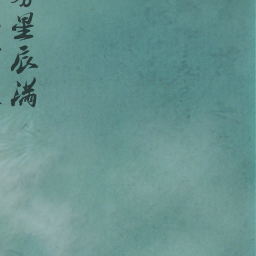 星辰满